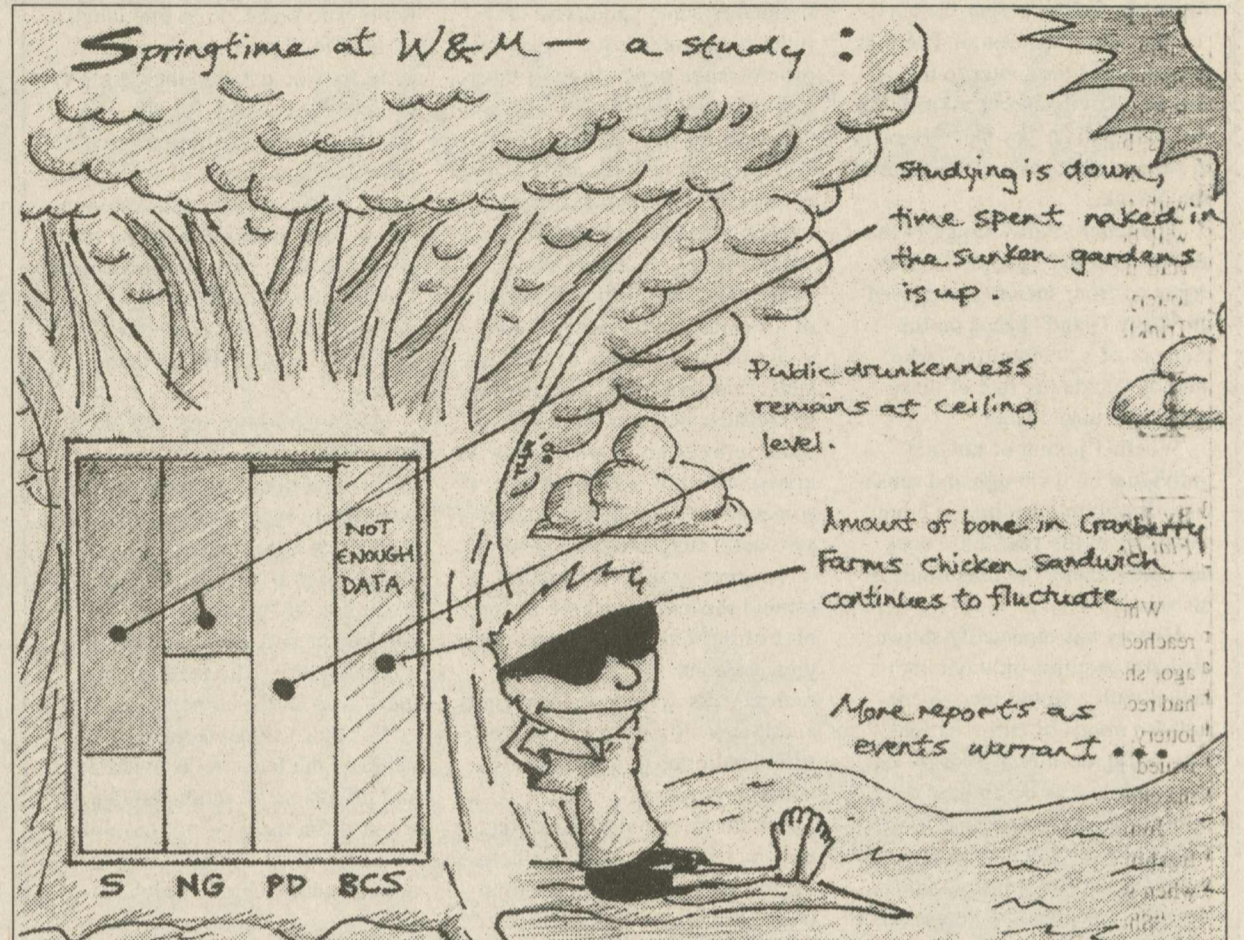 Springtime at W&M — a study :
Studying is down,
time spent naked in
the sunken gardens
is up.
Public drunkenness
remains at ceiling
level.
Amount of bone in Cranberry
Farms chicken sandwich
continues to fluctuate
More reports as
events warrant...
NOT
ENOUGH
DATA
S NG PD BCS